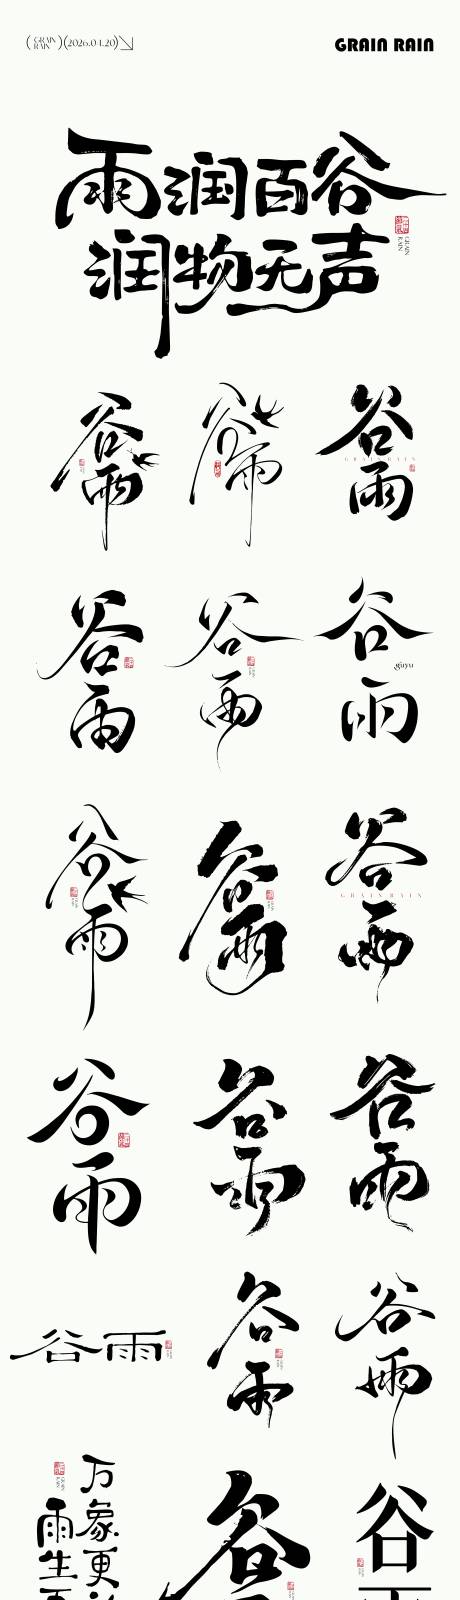 (GRAIN RAIN)(2026.04.20)
GRAIN RAIN
雨润百谷
GRAIN RAIN
润物无声
谷雨
谷雨
谷雨
GRAIN RAIN
谷雨
谷雨
谷雨
guyu
谷雨
谷雨
谷雨
GRAIN RAIN
谷雨
谷雨
谷雨
谷雨
谷雨
谷雨
万象更
雨生百
谷
谷雨